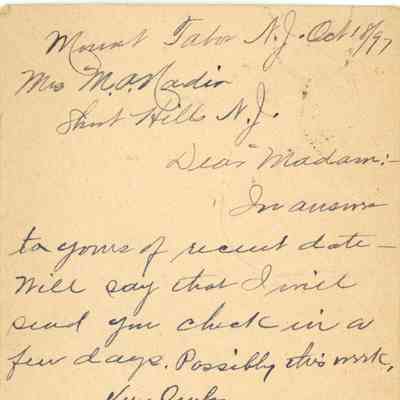 Mount Tabor N.J. Oct 18/97
Mrs M.A. Nadir
Short Hills N.J.
Dear Madam:-
In answer
to yours of recent date -
Will say that I will
send you check in a
few days. Possibly this week,